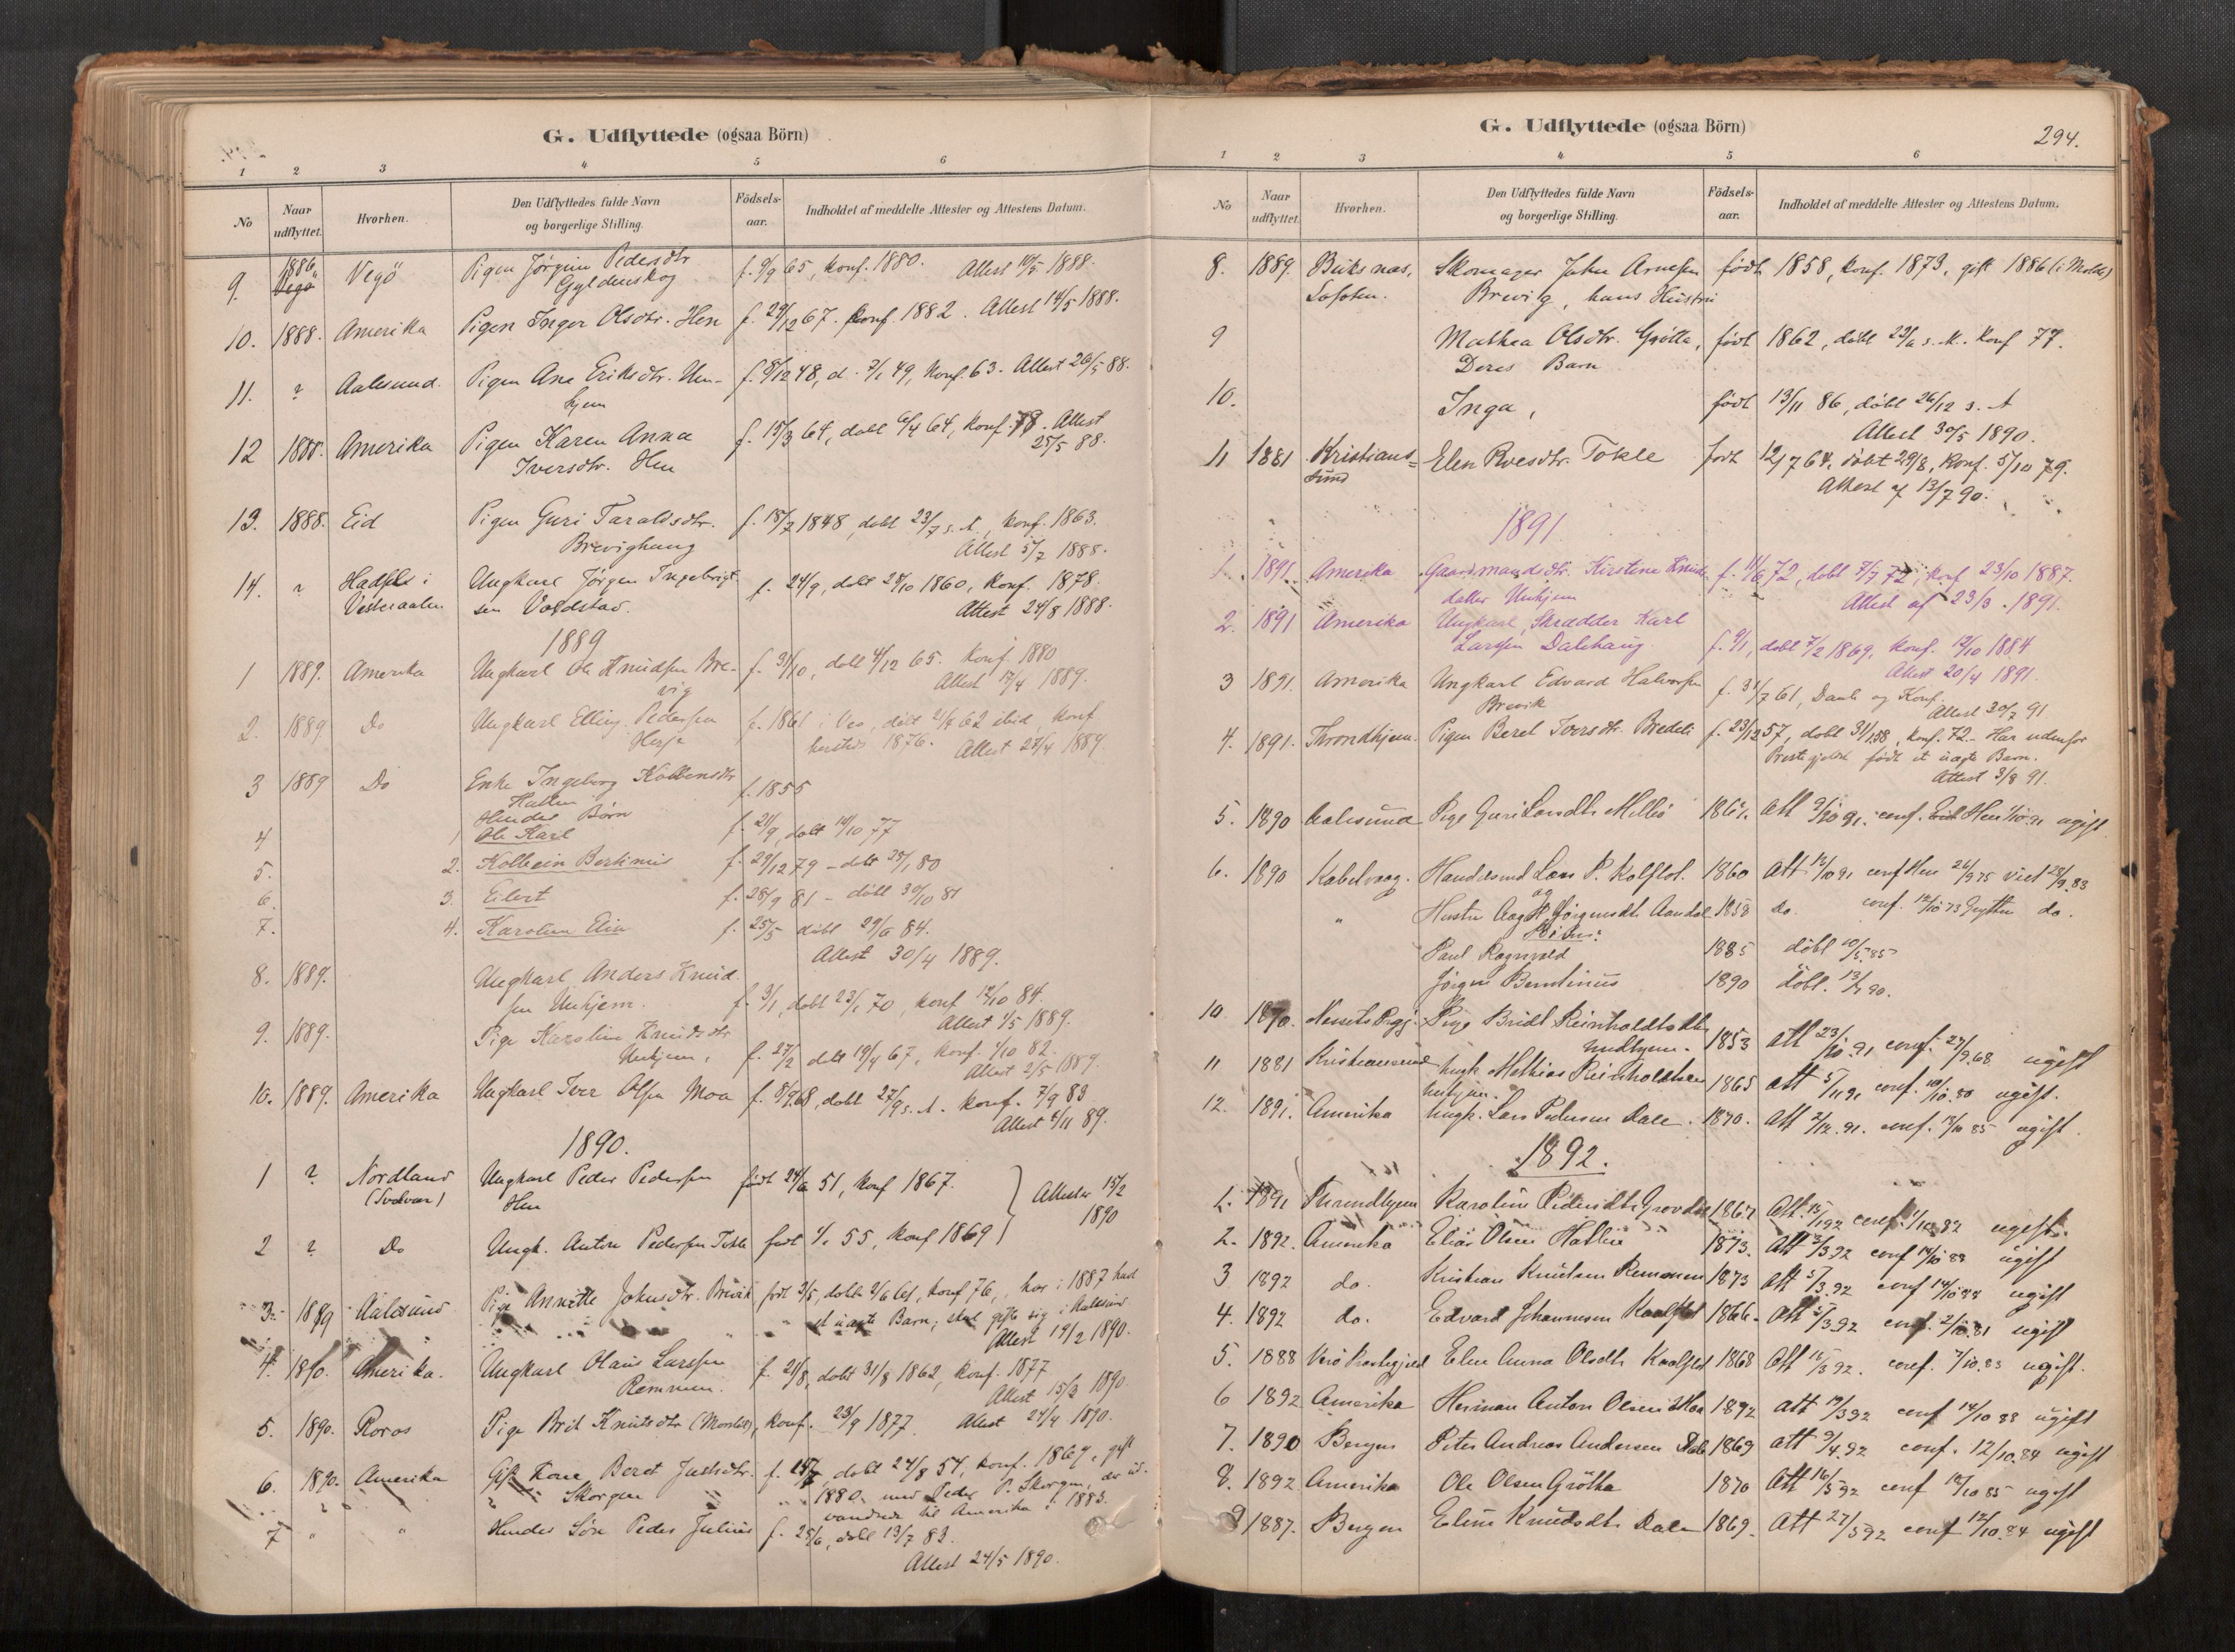 G. Udflyttede (ogsaa Börn)
1 2 3 4 5 6
No Naar udflyttet. Hvorhen. Den Udflyttedes fulde Navn og borgerlige Stilling. Födsels-aar. Indholdet af meddelte Attester og Attestens Datum.
9. 1886 Vegö Pigen Jörgine Pedersdtr f. 9/9 65, konf. 1880. Attest 10/5 1888.
Vegö Gyldenskog
10. 1888. Amerika Pigen Inger Olsdtr. Hen f. 29/12 67. konf. 1882. Attest 14/5 1888.
11. ? Aalesund. Pigen Ane Eriksdtr. Un- f. 8/12 48, d. 7/1 49, konf. 63. Attest 26/5 88.
hjem
12 1888. Amerika Pigen Karen Anna f. 15/3 64, döbt 6/4 64, konf. 78. Attest
Iversdtr. Hen 25/5 88.
13. 1888. Eid Pigen Guri Taraldsdtr. f. 15/7 1848, döbt 23/7 s. A., konf. 1863.
Brevighaug Attest 5/7 1888.
14. ? Hadsel i Ungkarl Jörgen Ingebrigt- f. 24/9, döbt 28/10 1860, konf. 1878.
Vesteraalen sen Voldstad. Attest 24/8 1888.
1889
1 1889. Amerika Ungkarl Ole Knudsen Bre- f. 31/10, döbt 4/12 65. konf. 1880
vig Attest 17/4 1889.
2. 1889 Do Ungkarl Elling Pedersen f. 1861 i Veö, döbt 21/4 62 ibid, konf
Herje hersteds 1876. Attest 27/4 1889
3 1889 Do Enke Ingeborg Kolbensdtr f. 1855
Hatlen
Hendes Börn
4 1 Ole Karl f. 21/9, döbt 14/10 77
5. 2. Kolbein Bertinius f. 29/12 79 - döbt 25/1 80
6. 3. Eilert f. 28/9 81 - döbt 30/10 81
7. 4. Karoline Elin f. 25/5 döbt 29/6 84.
Attest 30/4 1889.
8. 1889. Ungkarl Anders Knud-
sen Unhjem. f. 3/1, döbt 23/1 70, konf 12/10 84.
Attest 1/5 1889.
9. 1889. Pige Karoline Knudsdtr
Unhjem, f. 27/2 döbt 19/4 67, konf. 1/10 82.
Attest 2/5 1889.
10. 1889. Amerika Ungkarl Iver Olsen Moa f. 8/9 68, döbt 27/9 s. A. konf. 7/9 83
Attest 4/11 89.
1890.
1 ? Nordland Ungkarl Peder Pedersen födt 24/6 51, konf 1867. Attester 15/2
(Svolvær) Hen 1890
2 ? Do Ungk. Anton Pedersen Tokle födt 1/1 55, konf 1869
3. 1889 Aalesund Pige Annette Johnsdtr. Brevik födt 3/5, döbt 2/6 61, konf 76, har i 1887 havt
et uægte Barn; skal gifte sig i Aalesund
Attest 19/2 1890.
4. 1890. Amerika. Ungkarl Olaus Larssen f. 21/8, döbt 31/8 1862, konf. 1877
Remmen. Attest 15/3 1890.
5. 1890. Röros Pige Brit Knutsdtr (Morstøl), konf. 23/9 1877. Attest 24/4 1890.
6. 1890. Amerika Gift Kone Beret Justsdtr. f. 15/7 döbt 24/8 54, konf. 1869, gift
Skorgen 1880 med Peder P. Skorgen, der ud-
vandrede til Amerika i 1883.
7 " " Hendes Sön Peder Julius f. 25/6, döbt 13/7 83.
Attest 24/5 1890.
G. Udflyttede (ogsaa Börn)
294.
1 2 3 4 5 6
No Naar udflyttet. Hvorhen. Den Udflyttedes fulde Navn og borgerlige Stilling. Födsels-aar. Indholdet af meddelte Attester og Attestens Datum.
8. 1889. Buksnæs, Skomager John Arnesen födt 1858, konf. 1873, gift 1886 (i Molde)
Lofoten. Brevig, hans Hustru
9 Mathea Olsdtr. Grötta, födt 1862, döbt 22/6 s. A. konf 77.
Deres Barn
10. Inga, födt 13/11 86, döbt 26/12 s. A
Attest 30/5 1890.
11 1881 Kristians= Elen Roesdtr. Tokle födt 12/7 64. döbt 29/8, konf. 5/10 79.
sund Attest af 13/7 90.
1891
1. 1891. Amerika Gaardmandsdtr. Kirstine Knuds- f. 11/6 72, döbt 7/7 72, konf 23/10 1887.
datter Unhjem Attest af 23/3 1891.
2. 1891 Amerika Ungkarl, Skrædder Karl
Larssen Dalehaug. f. 9/1, döbt 7/2 1869, konf. 12/10 1884
Attest 20/4 1891.
3 1891. Amerika Ungkarl Edvard Halvorsen f. 31/7 61, Daab og Konf.
Brevik Attest 30/7 91
4. 1891. Throndhjem. Pigen Beret Iversdtr. Bredeli f. 23/12 57, döbt 31/1 58, konf. 72. Har udenfor
Prestegjeldet födt et uægte Barn.
Attest 3/8 91.
5. 1890 Aalesund Pige Guri Larsdtr. 186 att 9/10 91. conf. Hen 1/10 ugift
6. 1890 Kabelvaag. Handelsmd Lars P. Kolflot. 1860 att 12/10 91 conf Hen 26/9 75 viet 28/9 83
og
" Hustru Aag H. Jörgensdtr. Aandal 1858 do. conf. 12/10 73 Grytten do.
Börn:
Paul Ragnvald 1885 döbt 10/5 85
Jörgen Berntinus 1890 döbt. 13/7 90.
10 1890. Nessets Prgj. Pige Bridt Reinholdtsdtr
Undhjem. 1853 att 23/10 91 conf. 27/9 68 ugift
11 1881 Kristianssund Ungk. Mathias Reinholdtsen
Unhjem. 1865 att 5/11 91 conf. 10/10 80 ugift.
12. 1891. Amerika Ungk. Lars Pedersen Dale. 1870. Att 2/12 91. conf. 18/10 85 ugift.
1892.
1. 1891 Thrundhjem Karoline Pedersdtr. Grovdal 1867 Att. 15/1 92 conf. 1/10 82 ugift.
2. 1892. Amerika Eliar Olsen Hatlen 1873. Att 3/3 92 conf 14/10 88 ugift
3 1892 do. Kristian Knutsen Remmen 1873 Att 5/3 92 conf 14/10 88 ugift
4. 1892 do. Edvard Johannesen Kaalflot 1866. Att 5/3 92 conf. 2/10 81 ugift
5. 1888 Veö Prestegjeld Elen Anna Olsdtr. Kaalflot 1868 Att 12/3 92. conf. 7/10 83 ugift.
6 1892 Amerika Herman Anton Olsen Moa 1892 att 19/3 92 conf 14/10 88 ugift
7. 1890 Bergen Peter Andreas Andersen Dale 1869 att 9/4 92 conf. 12/10 84 ugift
8. 1892 Amerika Ole Olsen Grötta 1870 Att 16/5 92 conf 18/10 85 ugift
9 1887. Bergen Eline Knudsdtr. Dale 1869. Att 27/5 92 conf 12/10 84 ugift